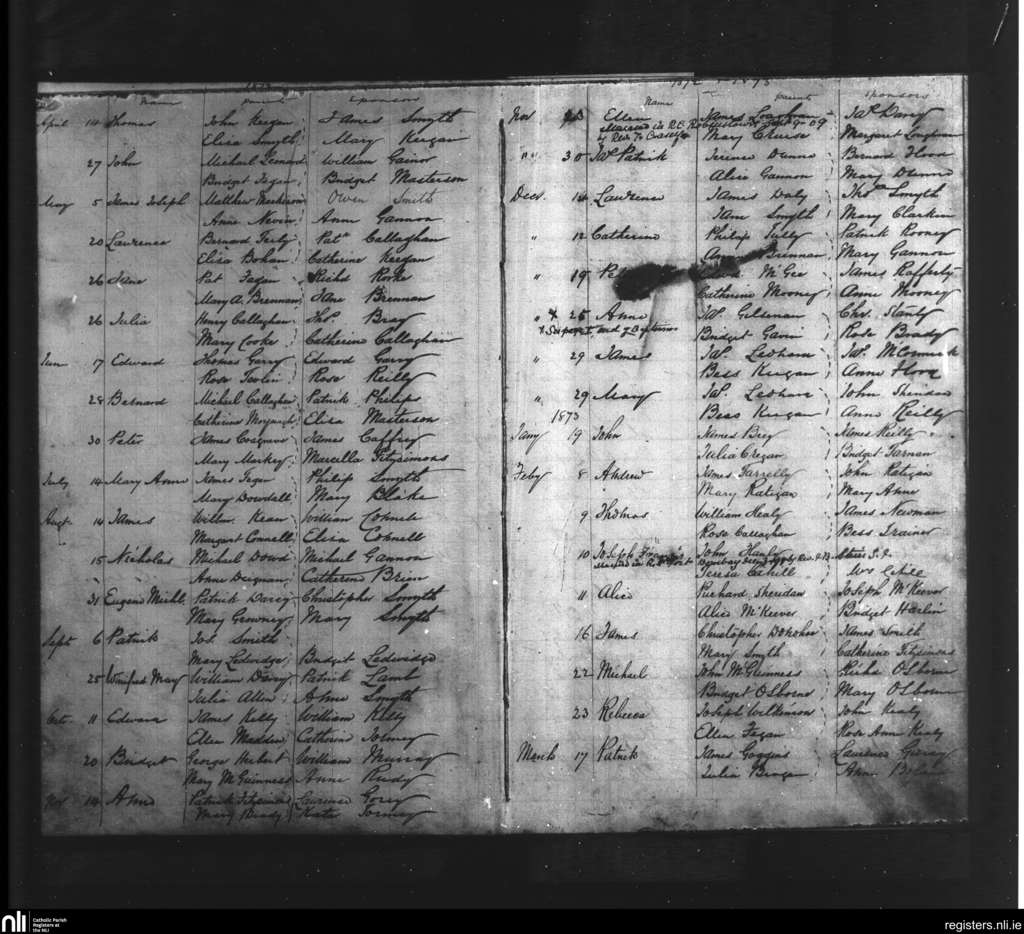 name parents sponsors
April 14 Thomas John Keegan James Smyth
Elisa Smyth Mary Keegan
27 John Michael Leonard William Gainor
Bridget Fagan Bridget Masterson
May 5 James Joseph Matthew Owen Smith
Anne Nevin Anne Gannon
20 Laurence Bernard Patk Callaghan
Elisa Bohan Catherine Keegan
26 Jane Pat Fagan Richd Rorke
Mary A. Brennan Jane Brennan
26 Julia Henry Callaghan Thos. Bray
Mary Cooke Catherine Callaghan
June 17 Edward Thomas Garry Edward Garry
Rose Rose Reilly
28 Bernard Michael Callaghan Patrick Philips
Catherine Elisa Masterson
30 Peter James Cosgrove James Caffrey
Mary Markey Marcella Fitzsimons
July 14 Mary Anne James Fagan Philip Smyth
Mary Dowdall Mary Blake
Augt 14 James Willm. Kean William Connell
Margaret Connell Elisa Connell
15 Nicholas Michael Dowd Michael Gannon
Anne Duignan Catherine Brien
31 Eugene Michl. Patrick Darcy Christopher Smyth
Mary Growney Mary Smyth
Sept 6 Patrick Jos. Smith
Mary Ledwidge Bridget Ledwidge
25 Winifred Mary William Darcy Patrick Lamb
Julia Allen Anne Smyth
Oct. 11 Edward James Kelly William Kelly
Ellen Madden Catherine Tormey
20 Bridget George Hubert William Murray
Mary McGuinness Anne
Nov 14 Anne Patrick Fitzsimons Laurence
Mary Brady Kate Tormey
1872 - 1873
Name parents sponsors
Nov 23 Ellen James Jas. Darcy
Married in R.C.
Mary Margaret
" " 30 Jas. Patrick Terence Dunne Bernard Flood
Alice Gannon Mary Dunne
Decr. 14 Laurence James Daly Thos. Smyth
Jane Smyth Mary Clarkin
" 12 Catherine Philip Tully Patrick Rooney
Brennan Mary Gannon
" 19 McGee James Rafferty
Catherine Mooney Anne Mooney
" x 25 Anne Jas. Gilsenan Chr. Stanly
x See page at end of Baptisms Bridget Gavin Rose Brady
" 29 James Jas. Ledham Jas. McCormick
Bess Keegan Anne Flood
" 29 Mary Jas. Ledham John Sheridan
Bess Keegan Anne Reilly
1873
Jany 19 John James Brey James Reilly
Julia Cregan Bridget Farnan
Feby 8 Andrew James Farrelly John Ratigan
Mary Ratigan Mary Anne
9 Thomas William Healy James Newman
Rose Callaghan Bess Trainor
10 Joseph John
married in R.C.
Teresa Cahill Wm Cahill
11 Alice Richard Sheridan Joseph McKeever
Alice McKeever Bridget Harlin
16 James Christopher Donohoe James Smith
Mary Smyth Catherine Fitzsimons
22 Michael John McGuinness Richd OSborne
Bridget OSborne Mary OSborne
23 Rebecca Joseph Wilkinson John Kealy
Ellen Fagan Rose Anne Kealy
March 17 Patrick James Goggins Laurence
Julia Brogan Anne
nli
Catholic Parish
Registers at
the NLI
registers.nli.ie